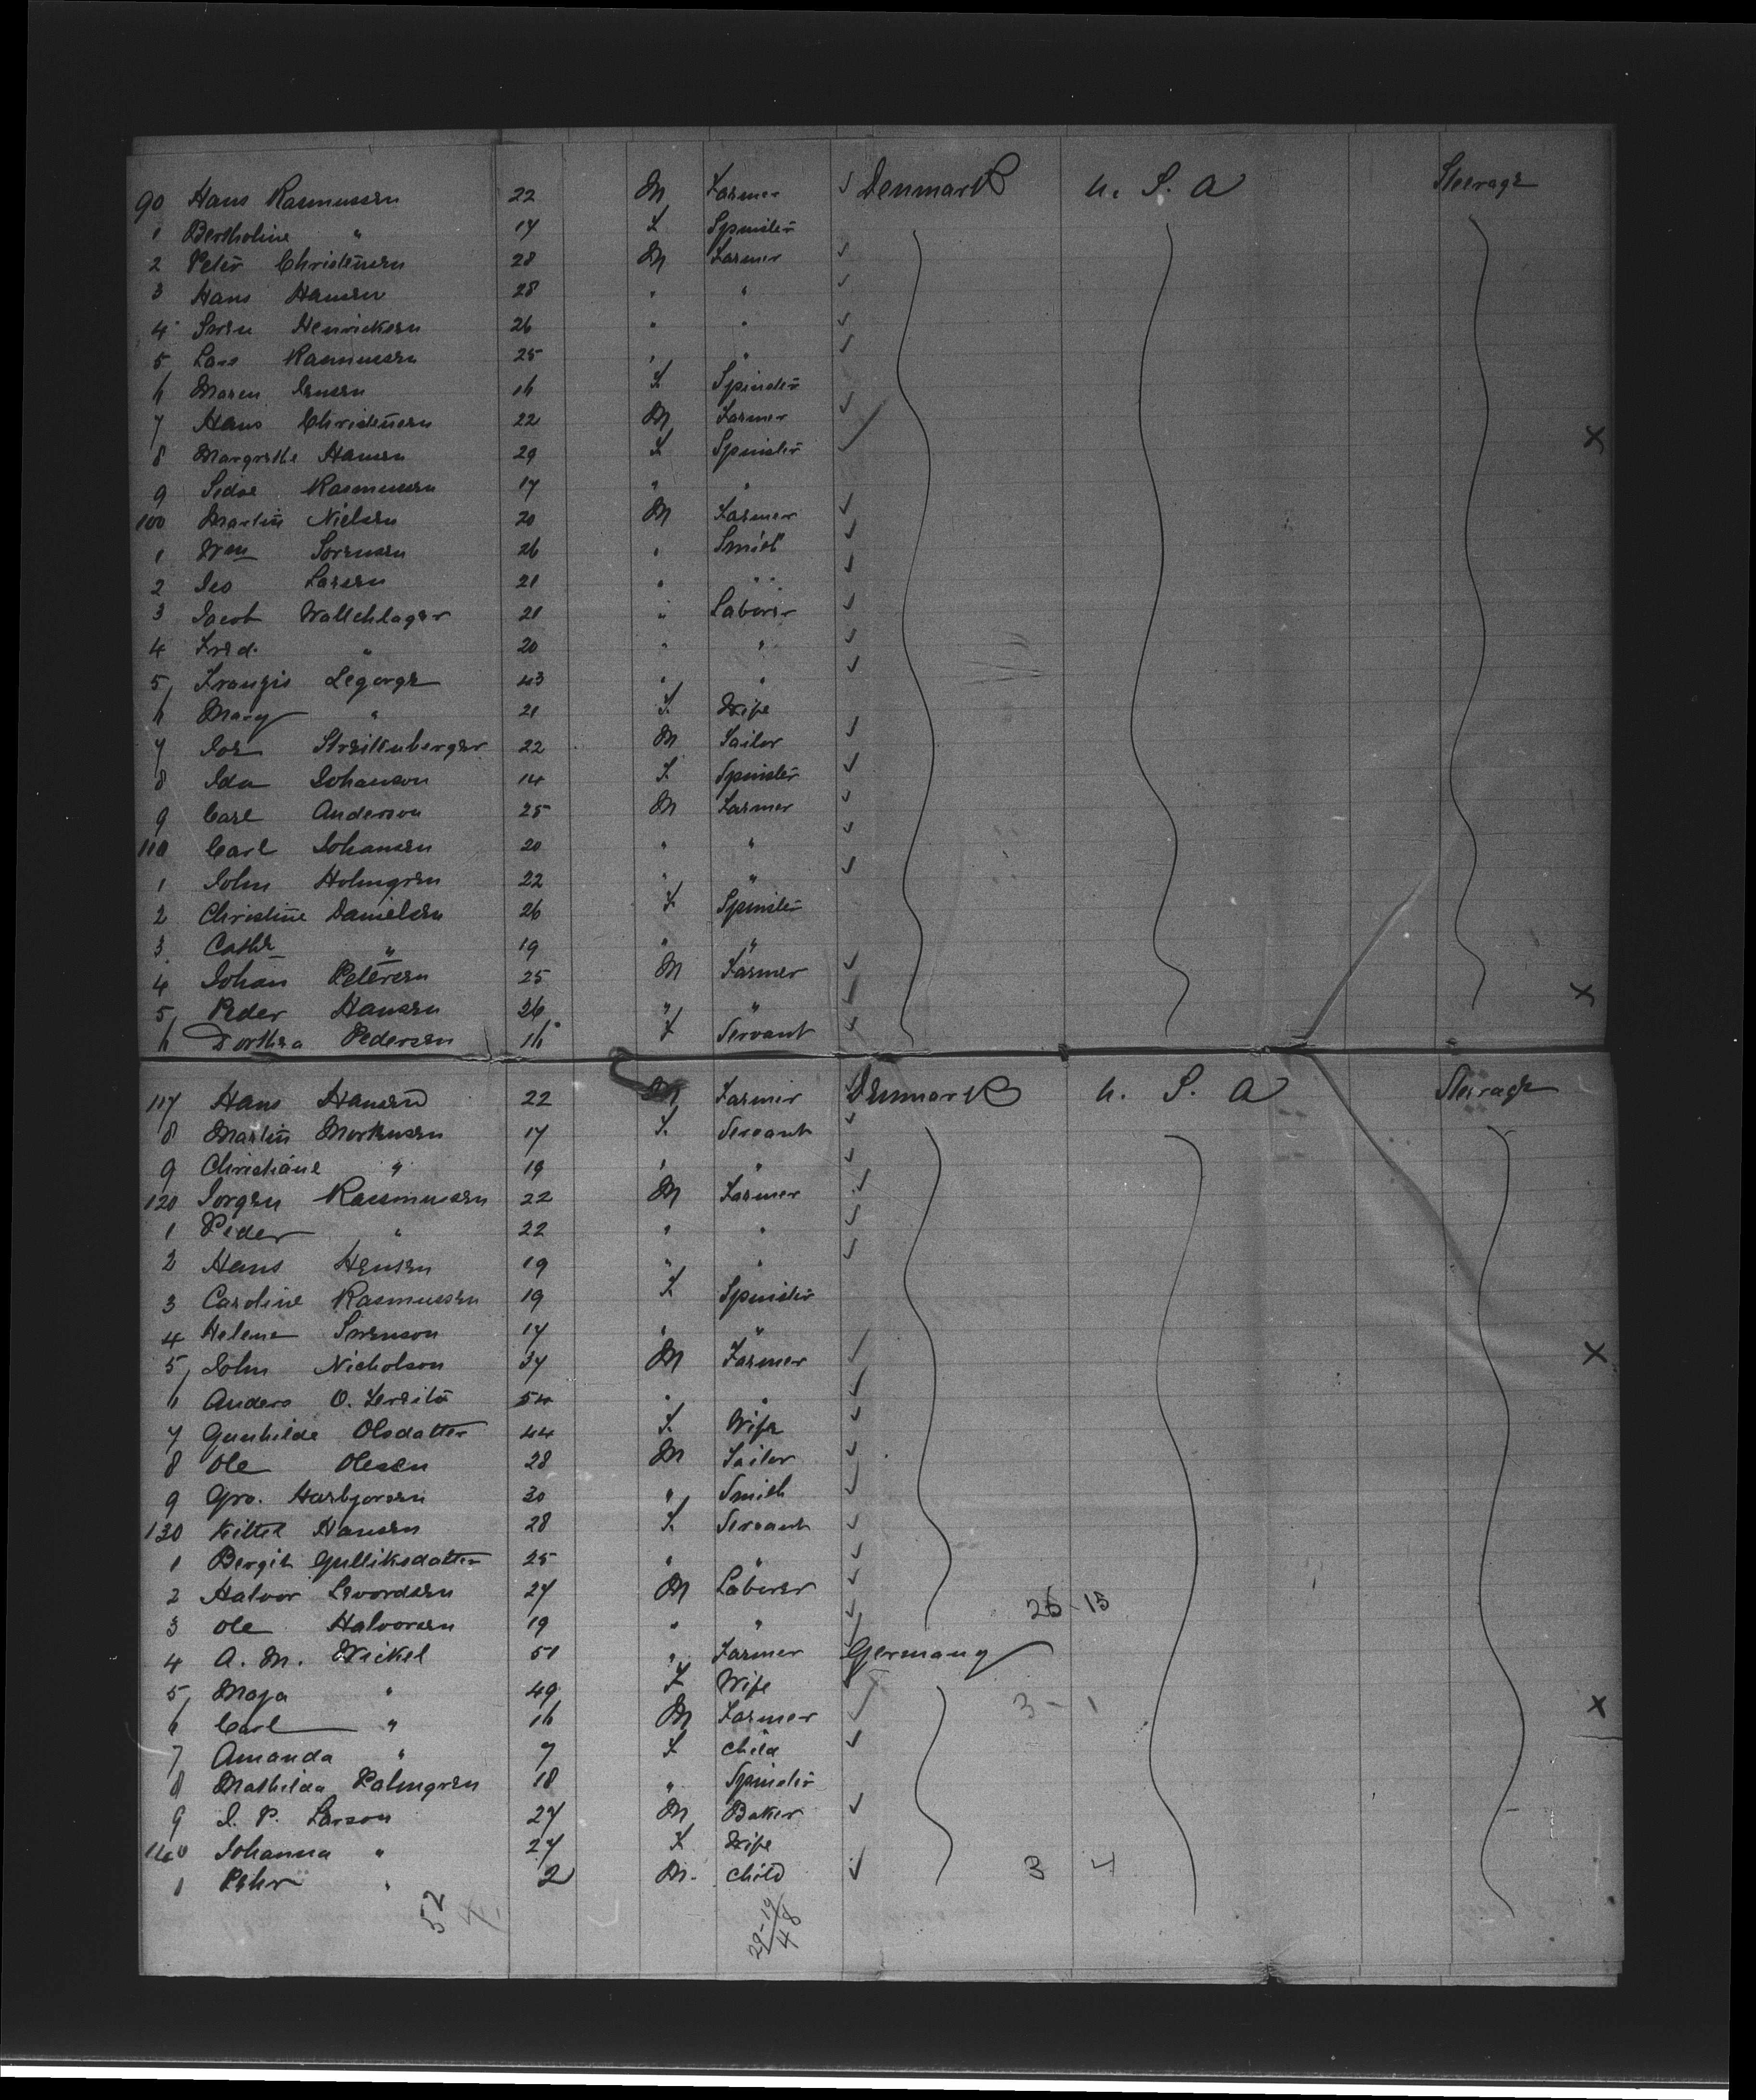 90 Hans Rasmussen 22 M Farmer ✓ Denmark U. S. A Steerage
1 Bertholine " 17 F Spinster
2 Peter Christensen 28 M Farmer ✓
3 Hans Hansen 28 " " ✓
4 Soren Henricksen 26 " " ✓
5 Lars Rasmussen 25 " " ✓
6 Maren Jensen 16 F Spinster
7 Hans Christensen 22 M Farmer ✓
8 Margrethe Hansen 29 F Spinster ✓ X
9 Rasmussen 17 " "
100 Martin Nielsen 20 M Farmer ✓
1 Wm Sorensen 26 " Smith ✓
2 Larsen 21 " " ✓
3 Jacob Wallehlager 21 " Laborer ✓
4 Fred. " 20 " " ✓
5 Franzis Legorge 43 " " ✓
6 Mary " 21 F. Wife
7 Jos Streitenberger 22 M Tailor ✓
8 Ida Johanson 14 F. Spinster ✓
9 Carl Anderson 25 M Farmer ✓
110 Carl Johansen 20 " " ✓
1 John Holmgren 22 " " ✓
2 Christine Danielsen 26 F Spinster
3 Cathe " 19 " "
4 Johan Petersen 25 M Farmer ✓
5 Peder Hansen 26 " " ✓ X
6 Dorthea Pedersen 16 F Servant ✓
117 Hans Hansen 22 M Farmer ✓ Denmark U. S. A Steerage
8 Martin Mortensen 17 F. Servant ✓
9 Christiane " 19 " " ✓
120 Jorgen Rasmussen 22 M Farmer ✓
1 Peder " 22 " " ✓
2 Hans Hensen 19 " " ✓
3 Caroline Rasmussen 19 F Spinster
4 Helene Sorenson 17 " "
5 John Nicholson 37 M Farmer ✓ X
6 Anders O. 54 " " ✓
7 Gunhilde Olsdatter 44 F. Wife ✓
8 Ole Olesen 28 M Tailor ✓
9 Gro. Hasbjorsen 30 " Smith ✓
130 Kittel Hansen 28 F. Servant ✓
1 Bergit Gulliksdatter 25 " " ✓
2 Halvor Levordsen 27 M Laborer ✓
3 Ole Halvorsen 19 " " ✓ 26-15
4 A. M. Wickel 51 " Farmer ✓ Germany
5 Maja " 49 F Wife ✓
6 Carl " 16 M Farmer ✓ 3-1 X
7 Amanda " 7 F Child ✓
8 Mathilda Palmgren 18 " Spinster
9 J. P. Larson 27 M Baker ✓
140 Johanna " 27 F Wife
1 Pehr " 2 M. Child ✓ 3 4
52
29-19
48